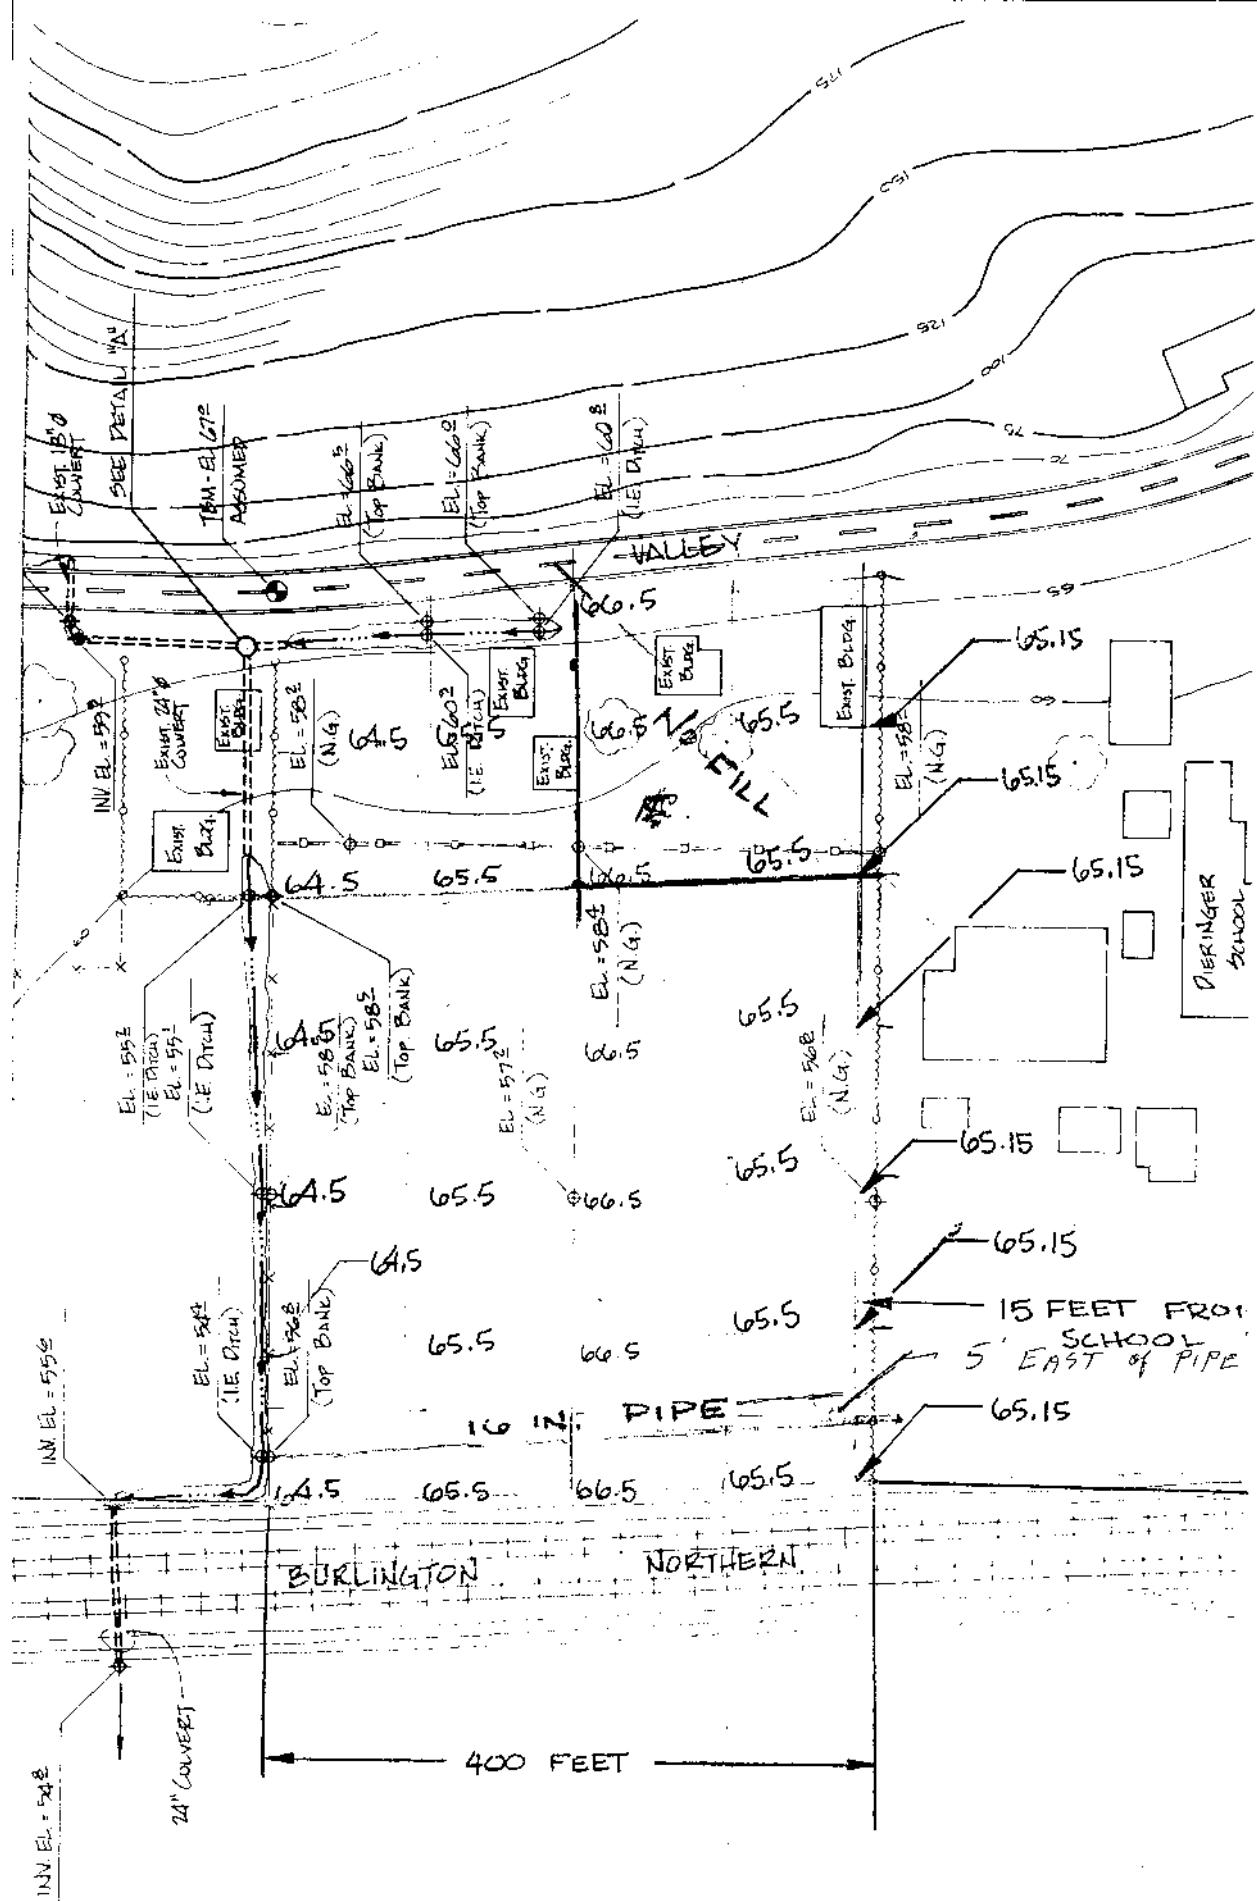 175
150
125
100
75
70
65
60
EXIST. 18"Ø
CULVERT
SEE DETAIL "A"
TBM - EL 67.0
ASSUMED
EL. = 66.5
(TOP BANK)
EL. = 66.0
(TOP BANK)
EL. = 60.8
(I.E. DITCH)
VALLEY
66.5
EXIST.
BLDG.
EXIST. BLDG.
65.15
INV. EL. = 59.2
EXIST. 24"Ø
CULVERT
EXIST.
BLDG.
EL = 58.2
(N.G.)
64.5
EL = 60.2
(I.E. DITCH)
EXIST.
BLDG.
EXIST.
BLDG.
66.5
NO
FILL
65.5
EL = 58
(N.G.)
65.15
EXIST.
BLDG.
60
64.5
65.5
66.5
65.5
65.15
DIERINGER
SCHOOL
EL. = 58.4
(N.G.)
EL = 55.2
(I.E. DITCH)
EL = 55.1
(I.E. DITCH)
64.5
EL = 58.5
(TOP BANK)
EL = 58.5
(TOP BANK)
65.5
EL = 57.2
(N.G)
66.5
65.5
EL = 56.8
(N.G.)
65.15
64.5
65.5
66.5
65.5
64.5
65.15
EL = 54.4
(I.E. DITCH)
EL = 56.8
(TOP BANK)
65.5
66.5
65.5
15 FEET
SCHOOL
5' EAST of PIPE
INV. EL = 55.6
16 IN. PIPE
65.15
64.5
65.5
66.5
65.5
BURLINGTON
NORTHERN
24" CULVERT
400 FEET
INV. EL. = 54.8